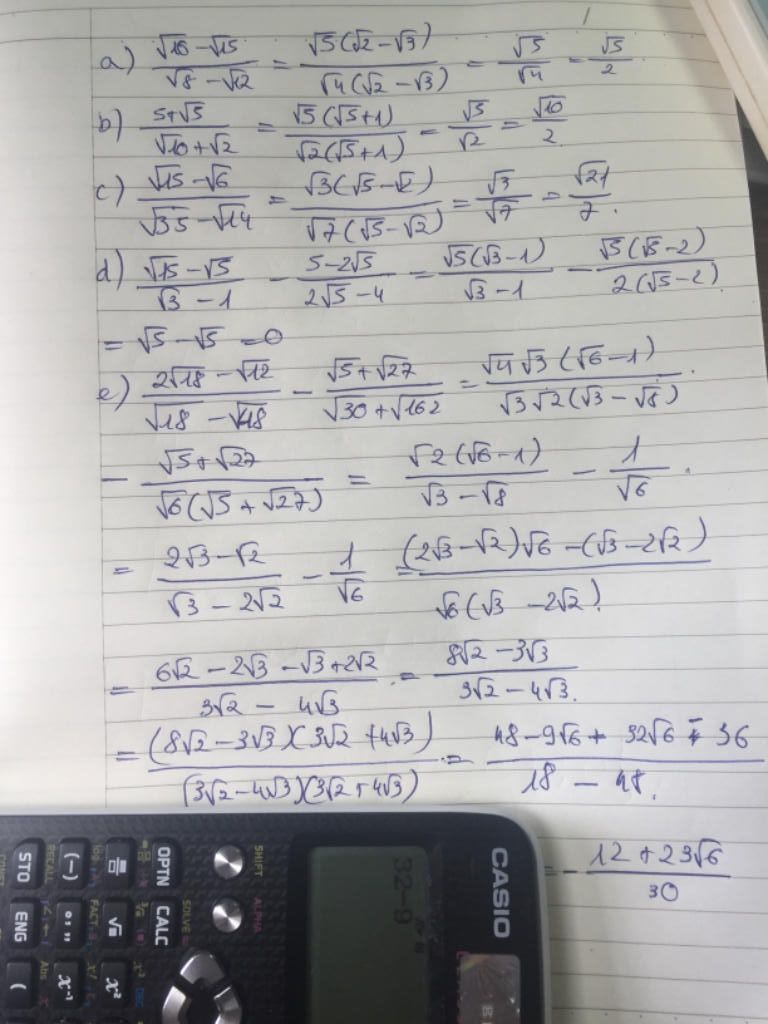 a) \frac{√16 - √15}{√8 - √12} = \frac{√5(√2 - √3)}{√4(√2 - √3)} = \frac{√5}{√4} = \frac{√5}{2}.
b) \frac{5+√5}{√10+√2} = \frac{√5(√5+1)}{√2(√5+1)} = \frac{√5}{√2} = \frac{√10}{2}.
c) \frac{√15 - √6}{√35 - √14} = \frac{√3(√5 - √2)}{√7(√5 - √2)} = \frac{√3}{√7} = \frac{√21}{7}.
d) \frac{√15 - √5}{√3 - 1} - \frac{5 - 2√5}{2√5 - 4} = \frac{√5(√3 - 1)}{√3 - 1} - \frac{√5(√5 - 2)}{2(√5 - 2)}
= √5 - √5 = 0
e) \frac{2√18 - √12}{√18 - √48} - \frac{√5 + √27}{√30 + √162} = \frac{√4√3(√6 - 1)}{√3√2(√3 - √8)}.
- \frac{√5 + √27}{√6(√5 + √27)} = \frac{√2(√6 - 1)}{√3 - √8} - \frac{1}{√6}.
= \frac{2√3 - √2}{√3 - 2√2} - \frac{1}{√6} = \frac{(2√3 - √2)√6 - (√3 - 2√2)}{√6(√3 - 2√2)}
= \frac{6√2 - 2√3 - √3 + 2√2}{3√2 - 4√3}. = \frac{8√2 - 3√3}{3√2 - 4√3}.
= \frac{(8√2 - 3√3)(3√2 + 4√3)}{(3√2 - 4√3)(3√2 + 4√3)}. = \frac{48 - 9√6 + 32√6 - 36}{18 - 48}.
= - \frac{12 + 23√6}{30}
CASIO
32-9
SHIFT
ALPHA
OPTN
CALC
SOLVE
(-)
STO
RECALL
ENG
FACT
Abs